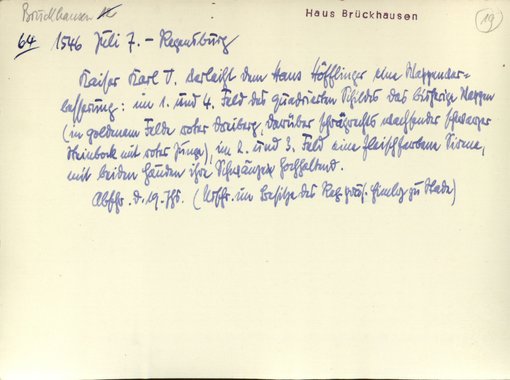 Bruckhausen
Haus Brückhausen
19
64 1546 Juli 7. – Regensburg
Kaiser Karl V. verleiht dem Hans Höfflinger eine Wappenver-
besserung: im 1. und 4. Feld des quadrierten Schildes das bisherige Wappen
(in goldenem Felde roter Dreiberg, darüber schrägrechts wachsender schwarzer
Steinbock mit roter Zunge), im 2. und 3. Feld eine fleischfarbene Sirene,
mit beiden Händen ihre Schwänze hochhaltend.
Abschr. d. 19. Jhs. (Urschr. im Besitze des Reg. präs. zu Stade)